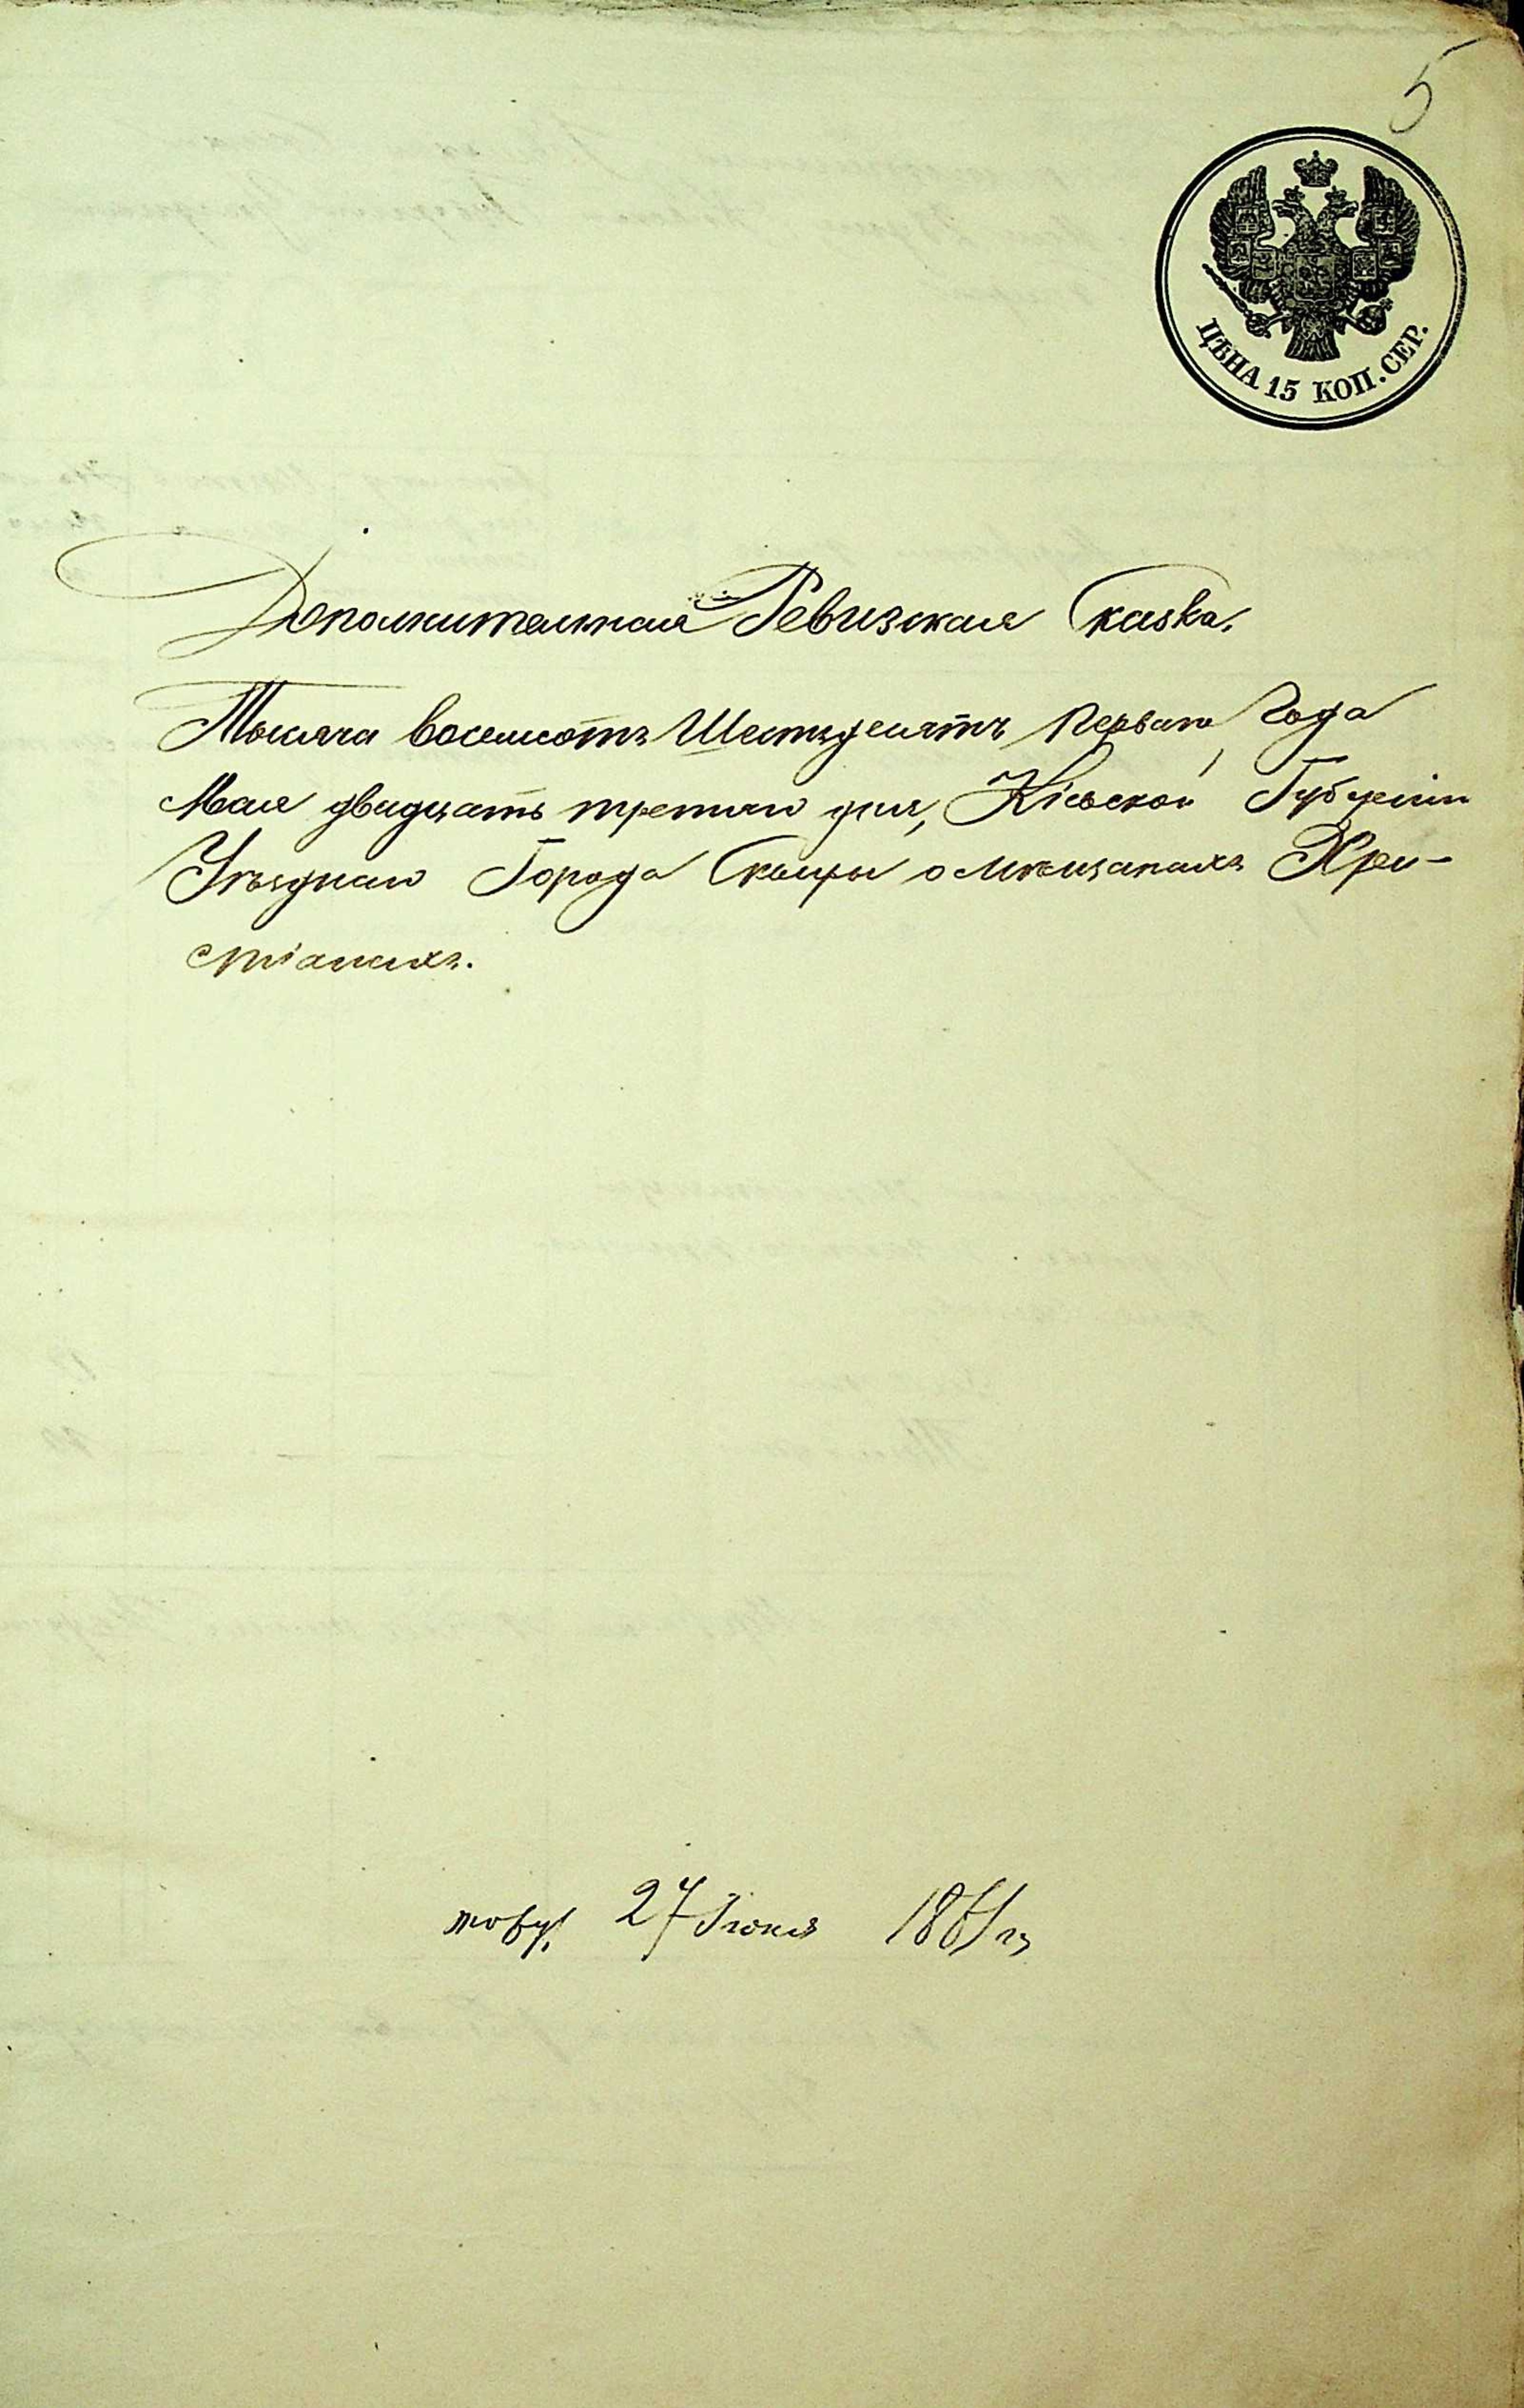 5
ЦѢНА 15 КОП. СЕР.
Дополнительная Ревизская Сказка.
Тысяча восемсотъ Шестьдесятъ перваго Года
Мая двадцать третяго дня, Кіевской Губерніи
Уѣзднаго Города Сквиры о мѣщанахъ Хри-
стіанахъ.
27 Іюня 1861 г.